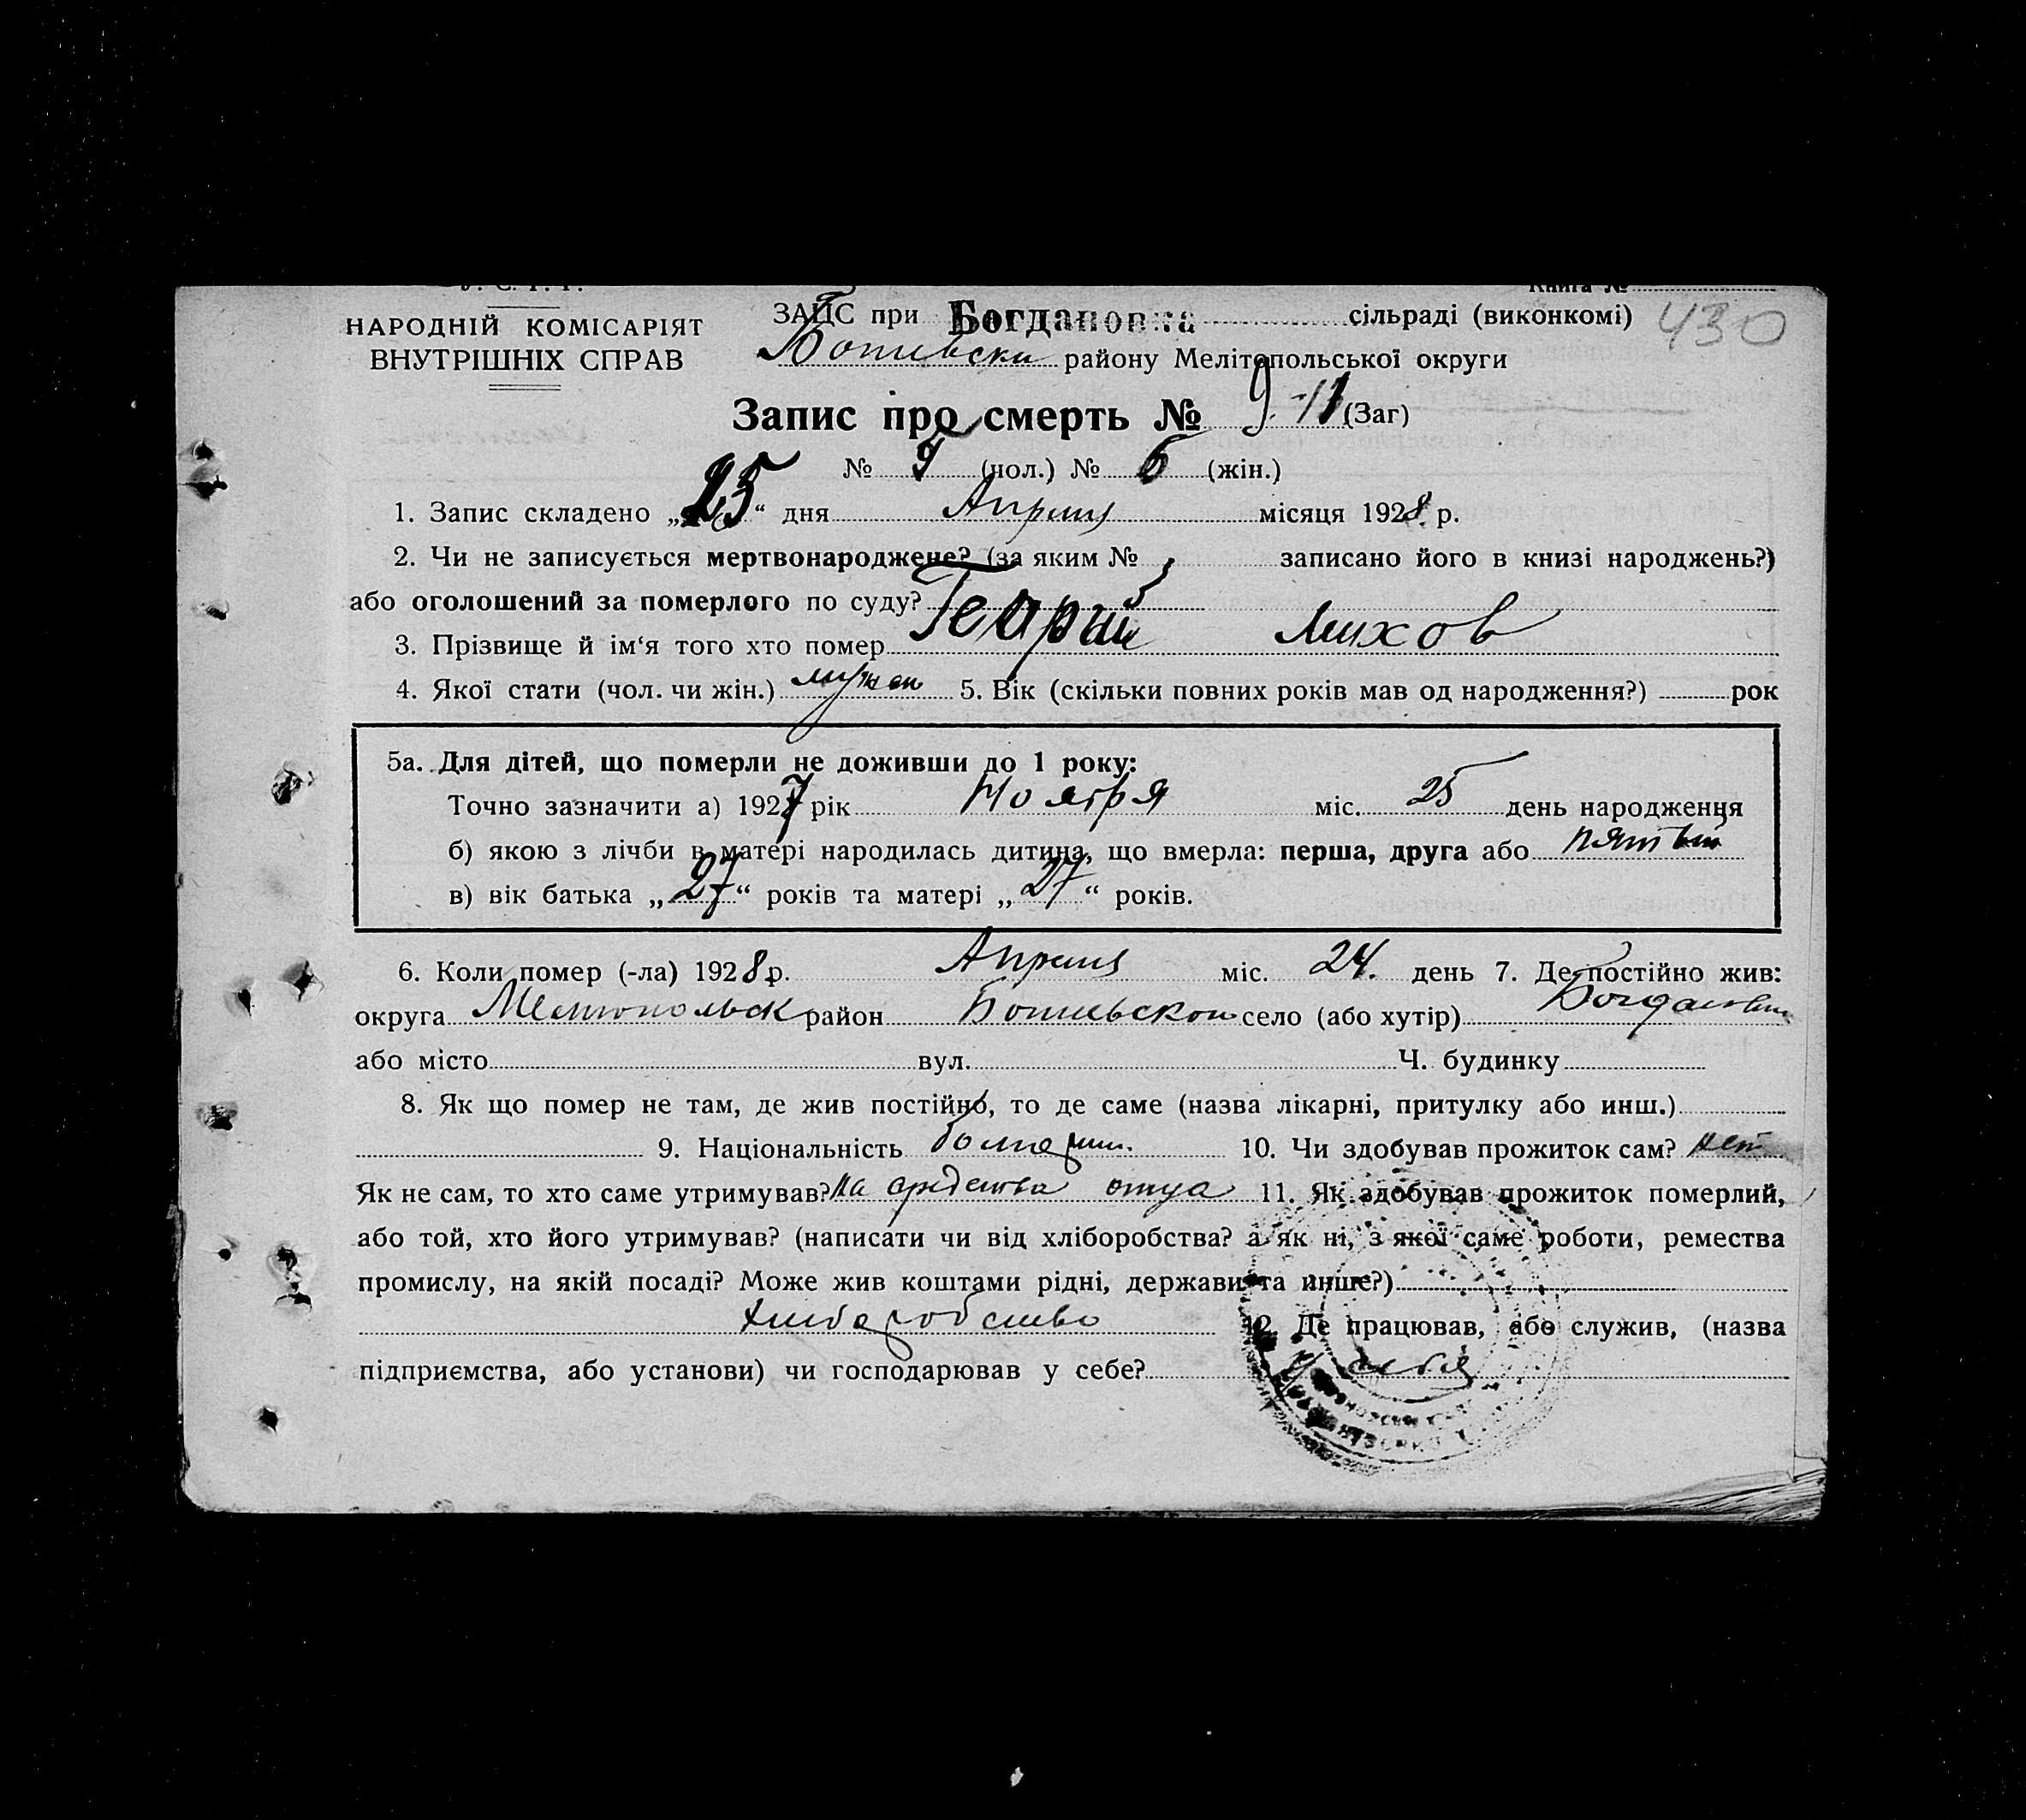 У. С. Р. Р.
Книга №
НАРОДНІЙ КОМІСАРІЯТ
ВНУТРІШНІХ СПРАВ
ЗАЦС при Богдановка сільраді (виконкомі) 430
Ботиевски району Мелітопольської округи
Запис про смерть № 9-11 (Заг)
№ 5 (чол.) № 6 (жін.)
1. Запис складено „25“ дня Апреля місяця 1928 р.
2. Чи не записується мертвонароджене? (за яким № записано його в книзі народжень?)
або оголошений за померлого по суду?
3. Прізвище й ім‘я того хто помер Геаргий Лихов
4. Якої стати (чол. чи жін.) мужск 5. Вік (скільки повних років мав од народження?) рок
5а. Для дітей, що померли не доживши до 1 року:
Точно зазначити а) 1927 рік Ноября міс. 25 день народження
б) якою з лічби в матері народилась дитина, що вмерла: перша, друга або пятый
в) вік батька „27“ років та матері „27“ років.
6. Коли помер (-ла) 1928 р. Апреля міс. 24. день 7. Де постійно жив:
округа Мелитопольск район Ботиевской село (або хутір)
або місто вул. Ч. будинку
8. Як що помер не там, де жив постійно, то де саме (назва лікарні, притулку або инш.)
9. Національність болгарин. 10. Чи здобував прожиток сам? нет
Як не сам, то хто саме утримував? На средства отца 11. Як здобував прожиток померлий,
або той, хто його утримував? (написати чи від хліборобства? а як ні, з якої саме роботи, ремества
промислу, на якій посаді? Може жив коштами рідні, держави та инше?)
хлибаробство 12. Де працював, або служив, (назва
підприємства, або установи) чи господарював у себе? у себя